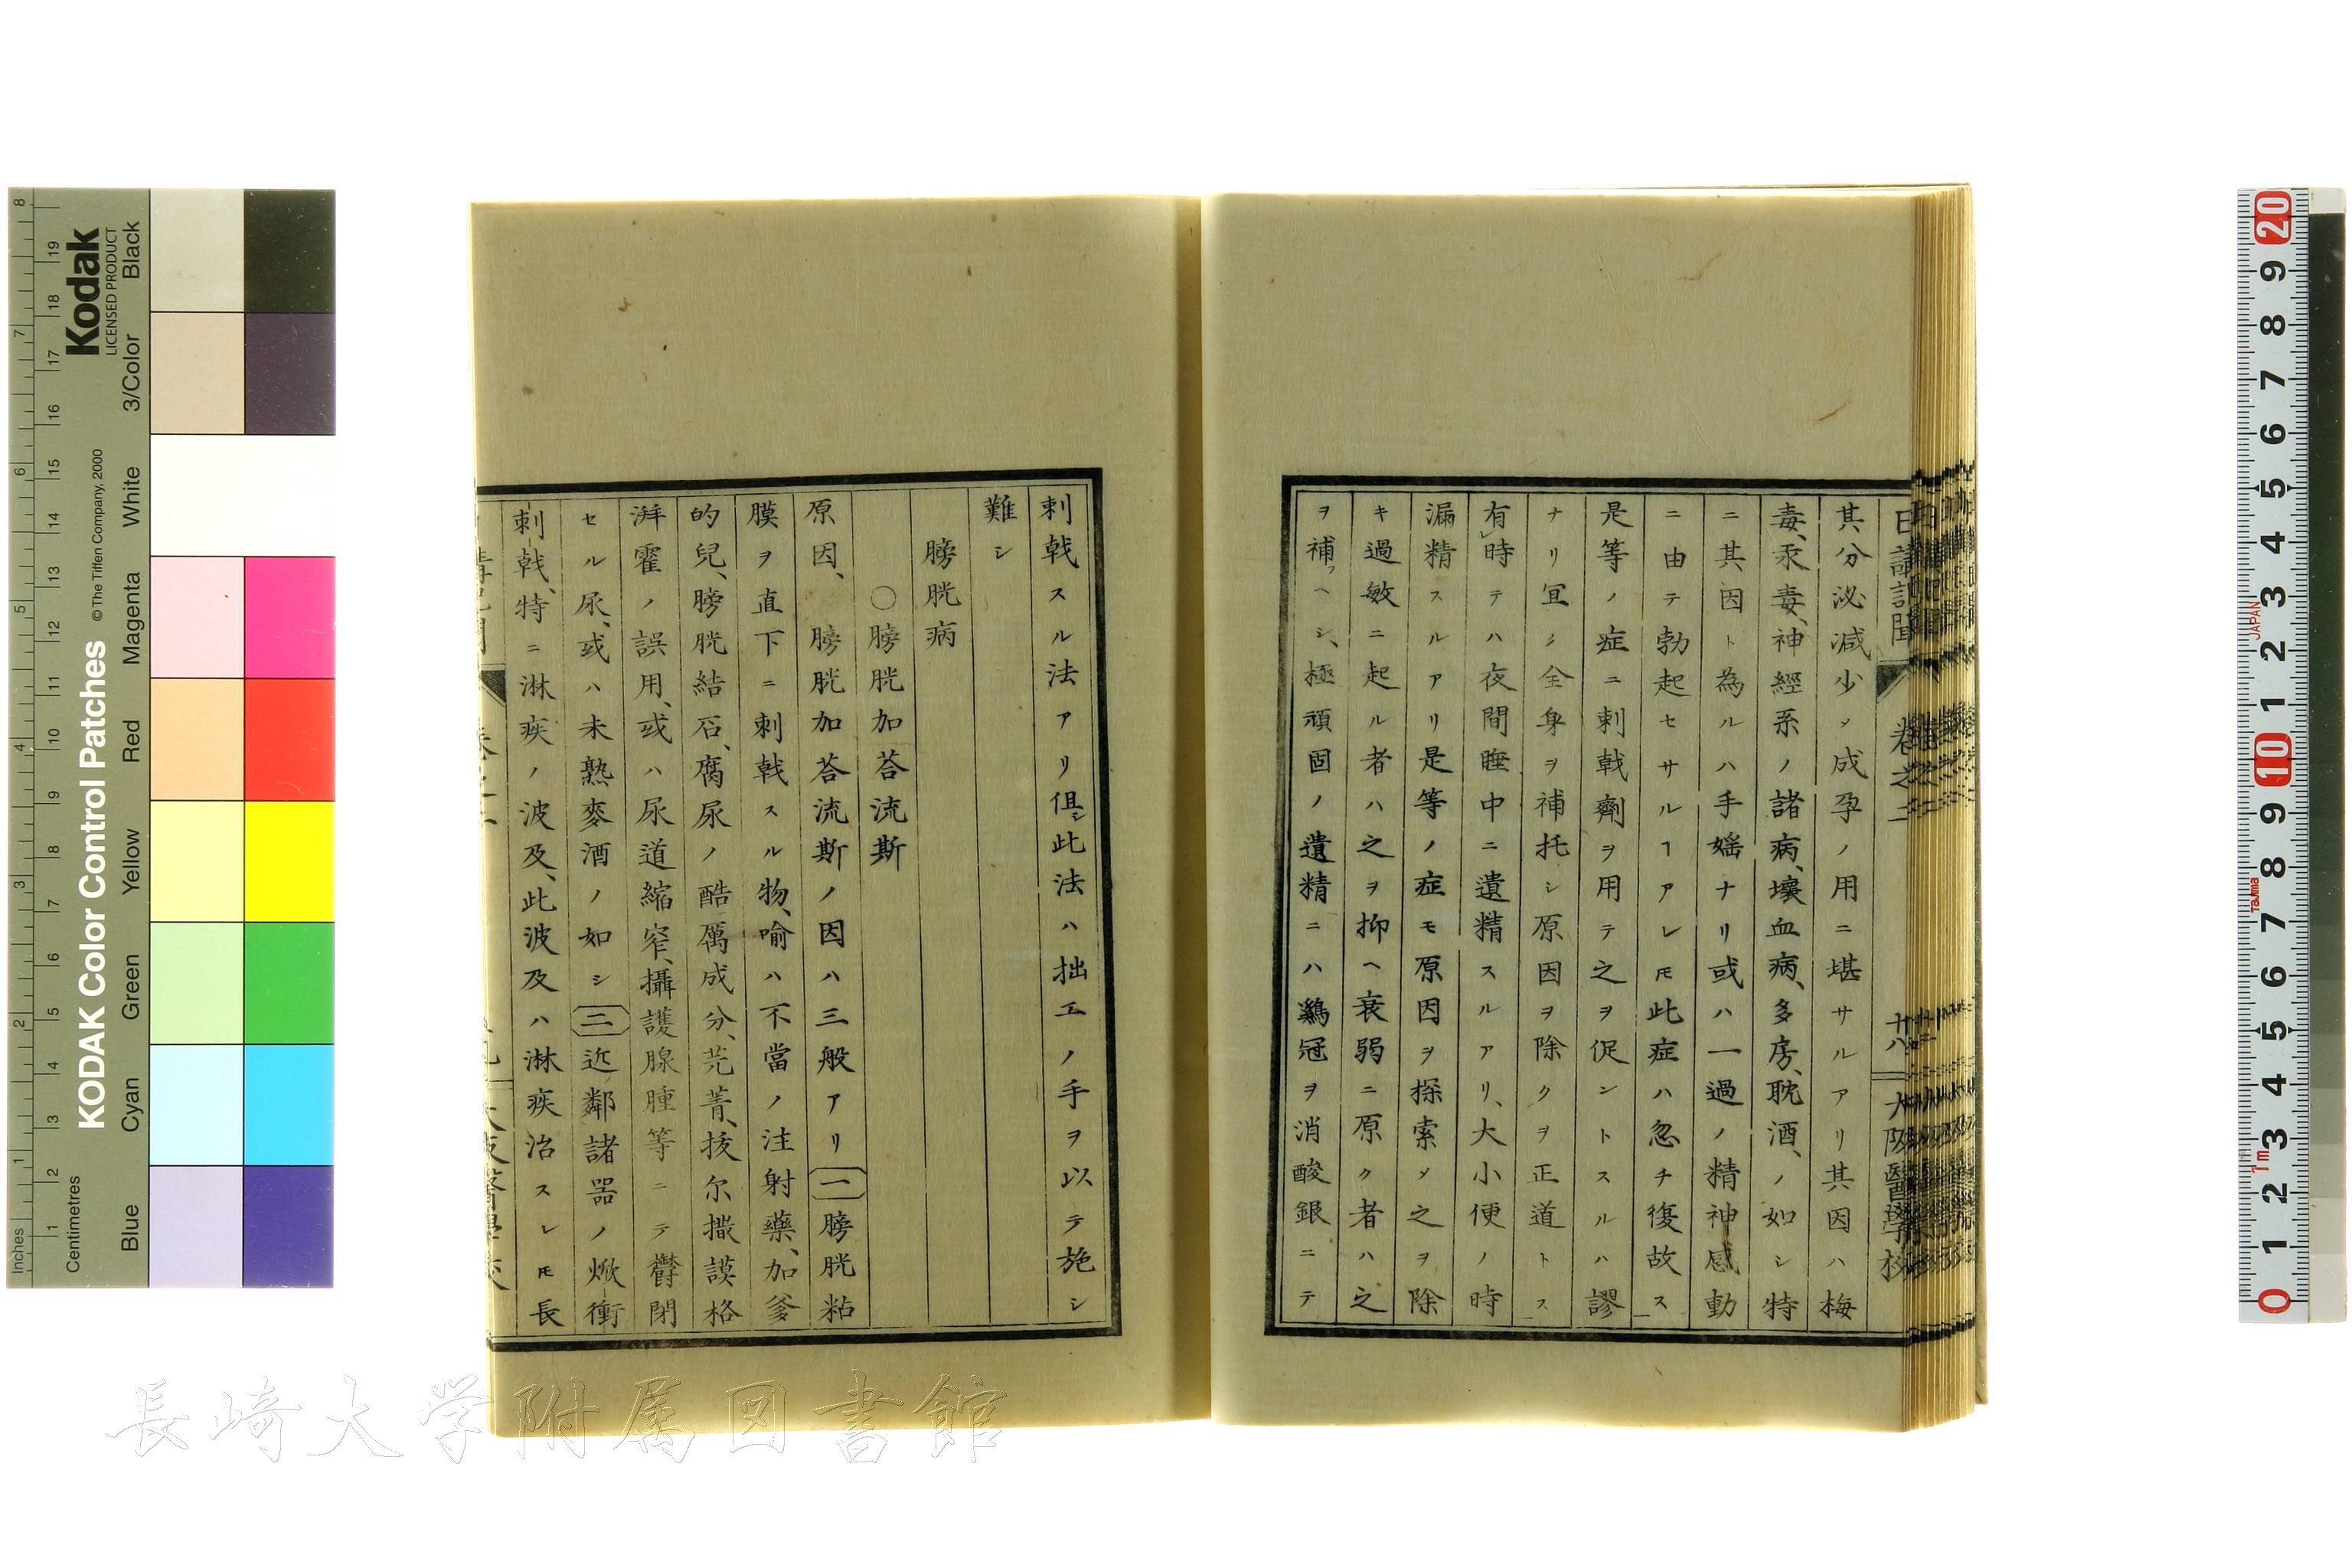 日講記聞 卷之二 廿八 大阪醫學校
其分泌減少〆成孕ノ用ニ堪サルアリ其因ハ梅
毒、汞毒、神經系ノ諸病、壞血病、多房、耽酒、ノ如シ特
ニ其因ト為ルハ手婬ナリ或ハ一過ノ精神感動
ニ由テ勃起セサルヿアレ𪜈此症ハ忽チ復故ス
是等ノ症ニ刺戟劑ヲ用テ之ヲ促ントスルハ謬
ナリ冝シク全身ヲ補托シ原因ヲ除クヲ正道トス
有時テハ夜間睡中ニ遺精スルアリ、大小便ノ時
漏精スルアリ是等ノ症モ原因ヲ探索〆之ヲ除
キ過敏ニ起ル者ハ之ヲ抑ヘ衰弱ニ原ク者ハ之
ヲ補フヘシ、極頑固ノ遺精ニハ鷄冠ヲ消酸銀ニテ
刺戟スル法アリ但シ此法ハ拙工ノ手ヲ以テ施シ
難シ
膀胱病
○膀胱加荅流斯
原因、膀胱加荅流斯ノ因ハ三般アリ一膀胱粘
膜ヲ直下ニ刺戟スル物、喻ハ不當ノ注射藥、加爹
的兒、膀胱結石、腐尿ノ酷厲成分、芫菁、抜尔撒謨格
湃霍ノ誤用、或ハ尿道縮窄、攝護腺腫等ニテ欝閉
セル尿、或ハ未熟麥酒ノ如シ二近鄰諸噐ノ焮衝
刺戟、特ニ淋疾ノ波及、此波及ハ淋疾治スレ𪜈長
Kodak
LICENSED PRODUCT
KODAK Color Control Patches
©The Tiffen Company, 2000
Inches
Centimetres
Blue Cyan Green Yellow Red Magenta White 3/Color Black
1 2 3 4 5 6 7 8
1 2 3 4 5 6 7 8 9 10 11 12 13 14 15 16 17 18 19
20 9 8 7 6 5 4 3 2 1 10 9 8 7 6 5 4 3 2 1 0
JAPAN
TaJima
1m
長崎大学附属図書館